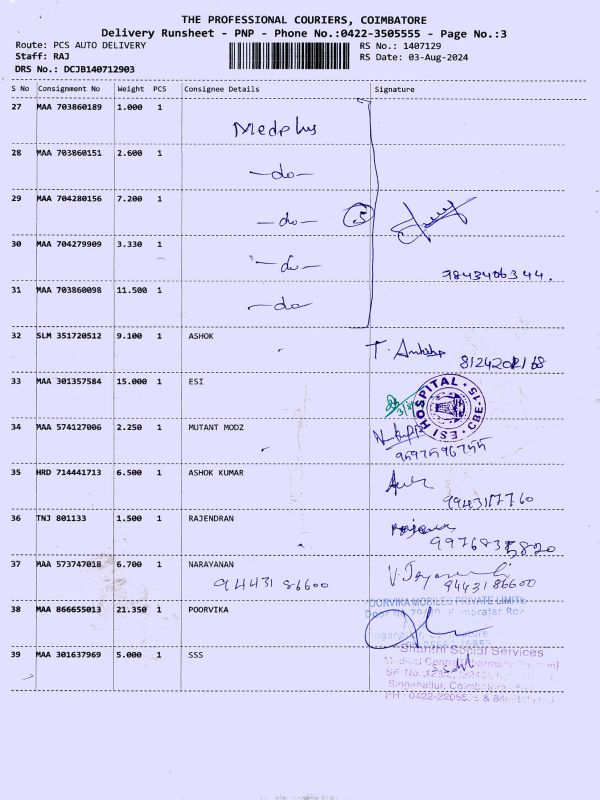 THE PROFESSIONAL COURIERS, COIMBATORE
Delivery Runsheet - PNP - Phone No.:0422-3505555 - Page No.:3
Route: PCS AUTO DELIVERY RS No.: 1407129
Staff: RAJ RS Date: 03-Aug-2024
DRS No.: DCJB140712903
S No Consignment No Weight PCS Consignee Details Signature
27 MAA 703860189 1.000 1
Medplus
28 MAA 703860151 2.600 1
-do-
29 MAA 704280156 7.200 1
-do- 5
30 MAA 704279909 3.330 1
-do-
9843406344.
31 MAA 703860098 11.500 1
-do-
32 SLM 351720512 9.100 1 ASHOK
T.
33 MAA 301357584 15.000 1 ESI
ESI HOSPITAL CBE-15
34 MAA 574127006 2.250 1 MUTANT MODZ
9597596755
35 HRD 714441713 6.500 1 ASHOK KUMAR
9943177760
36 TNJ 801133 1.500 1 RAJENDRAN
37 MAA 573747018 6.700 1 NARAYANAN
94431 86600 9443186600
38 MAA 866655013 21.350 1 POORVIKA
POORVIKA MOBILES PRIVATE LIMITE
Door No. 79/80, Kumarajar Roa
39 MAA 301637969 5.000 1 SSS
Shanthi Social Services
Medical Centre Pharmacy
Singanallur, Coimbatore
PH : 0422-22055